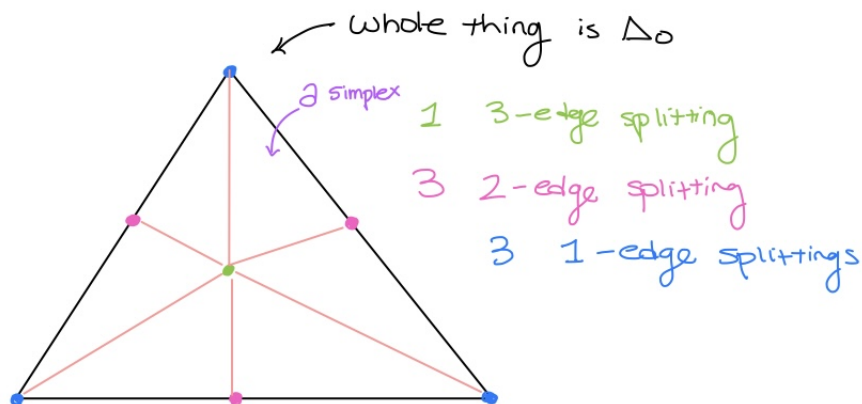 whole thing is Δ0
2 simplex
1 3-edge splitting
3 2-edge splitting
3 1-edge splittings